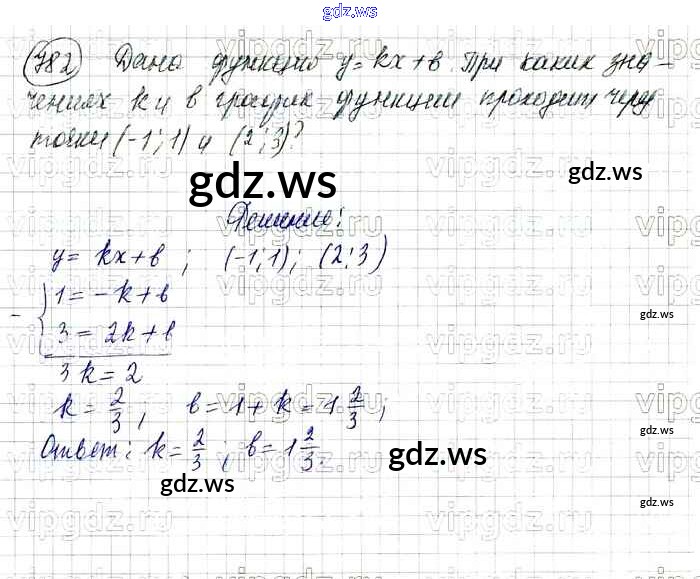 gdz.ws
782 Дана функция y = kx + b. При каких зна-
чениях k и b график функции проходит через
точки (-1; 1) и (2; 3)?
gdz.ws
gdz.ws
Решение:
y = kx + b ; (-1; 1); (2; 3)
1 = -k + b
3 = 2k + b
gdz.ws
3k = 2
k = 2/3 ; b = 1 + k = 1 2/3 ;
Ответ: k = 2/3 ; b = 1 2/3.
gdz.ws
gdz.ws
gdz.ws
gdz.ws
gdz.ws